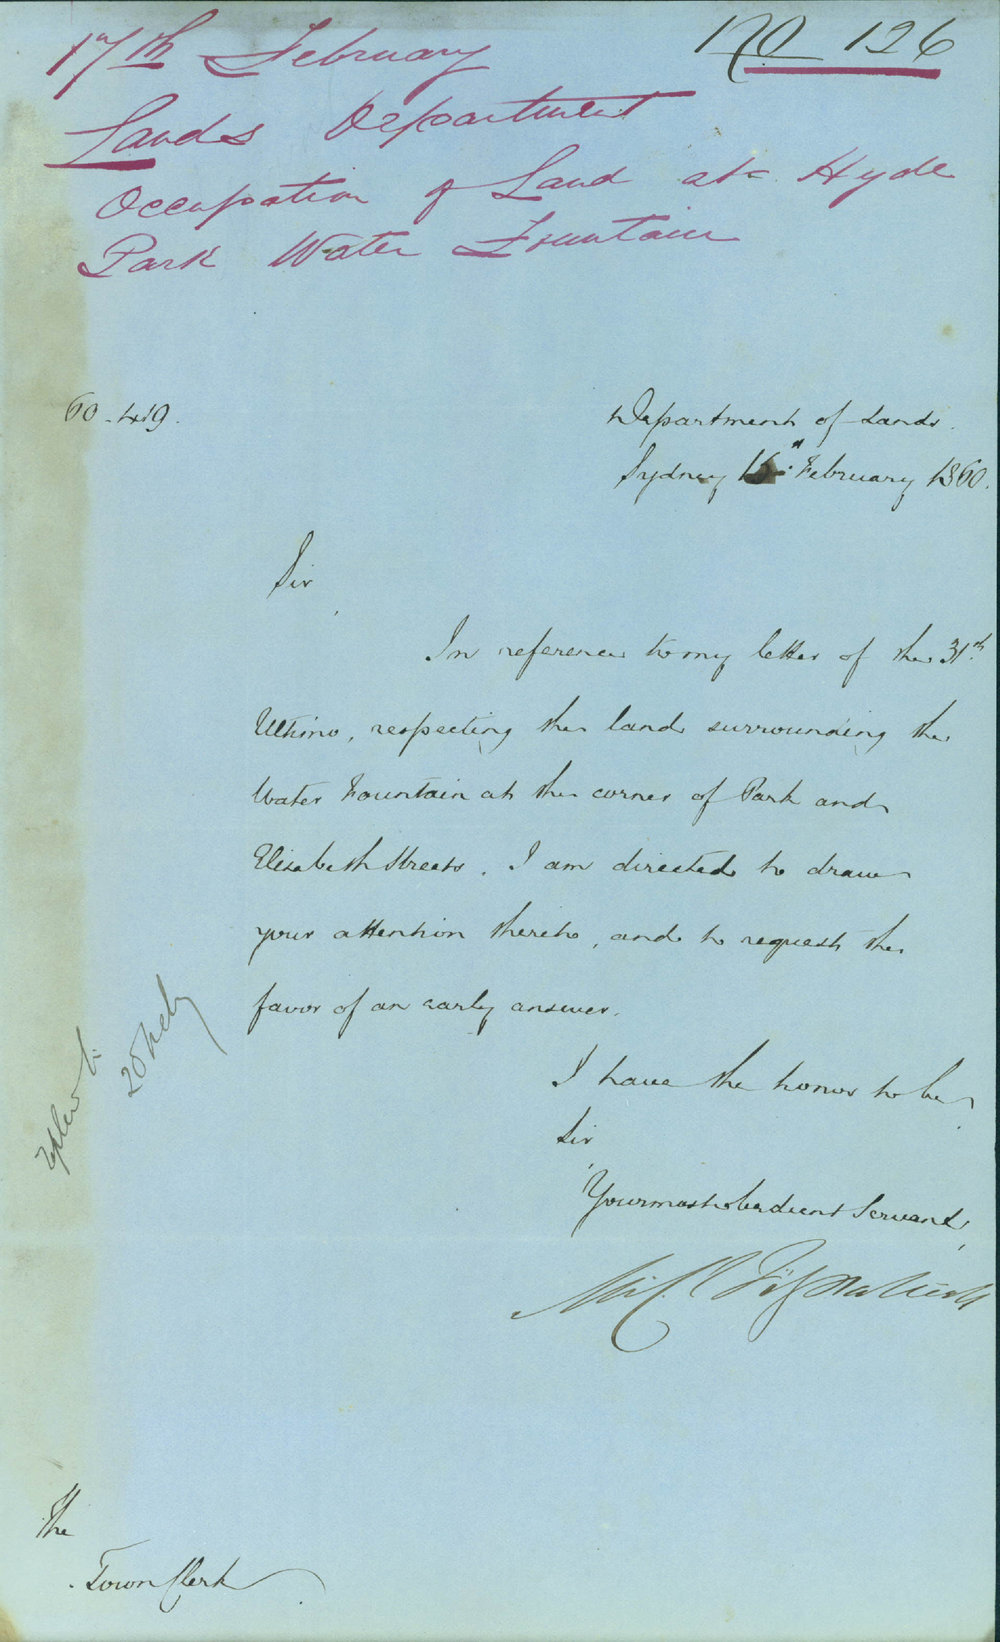 17th February No 126
Lands Department
Occupation of Land at Hyde
Park Water Fountain
60-419.
Department of Lands.
Sydney February 1860.
Sir
In reference to my letter of the 31st
Ultimo, respecting the land surrounding the
Water Fountain at the corner of Park and
Elizabeth Streets. I am directed to draw
your attention thereto, and to request the
favor of an early answer.
I have the honor to be,
Sir
Your most obedient Servant,
Mic. Fitzpatrick
20 Feby
The
Town Clerk